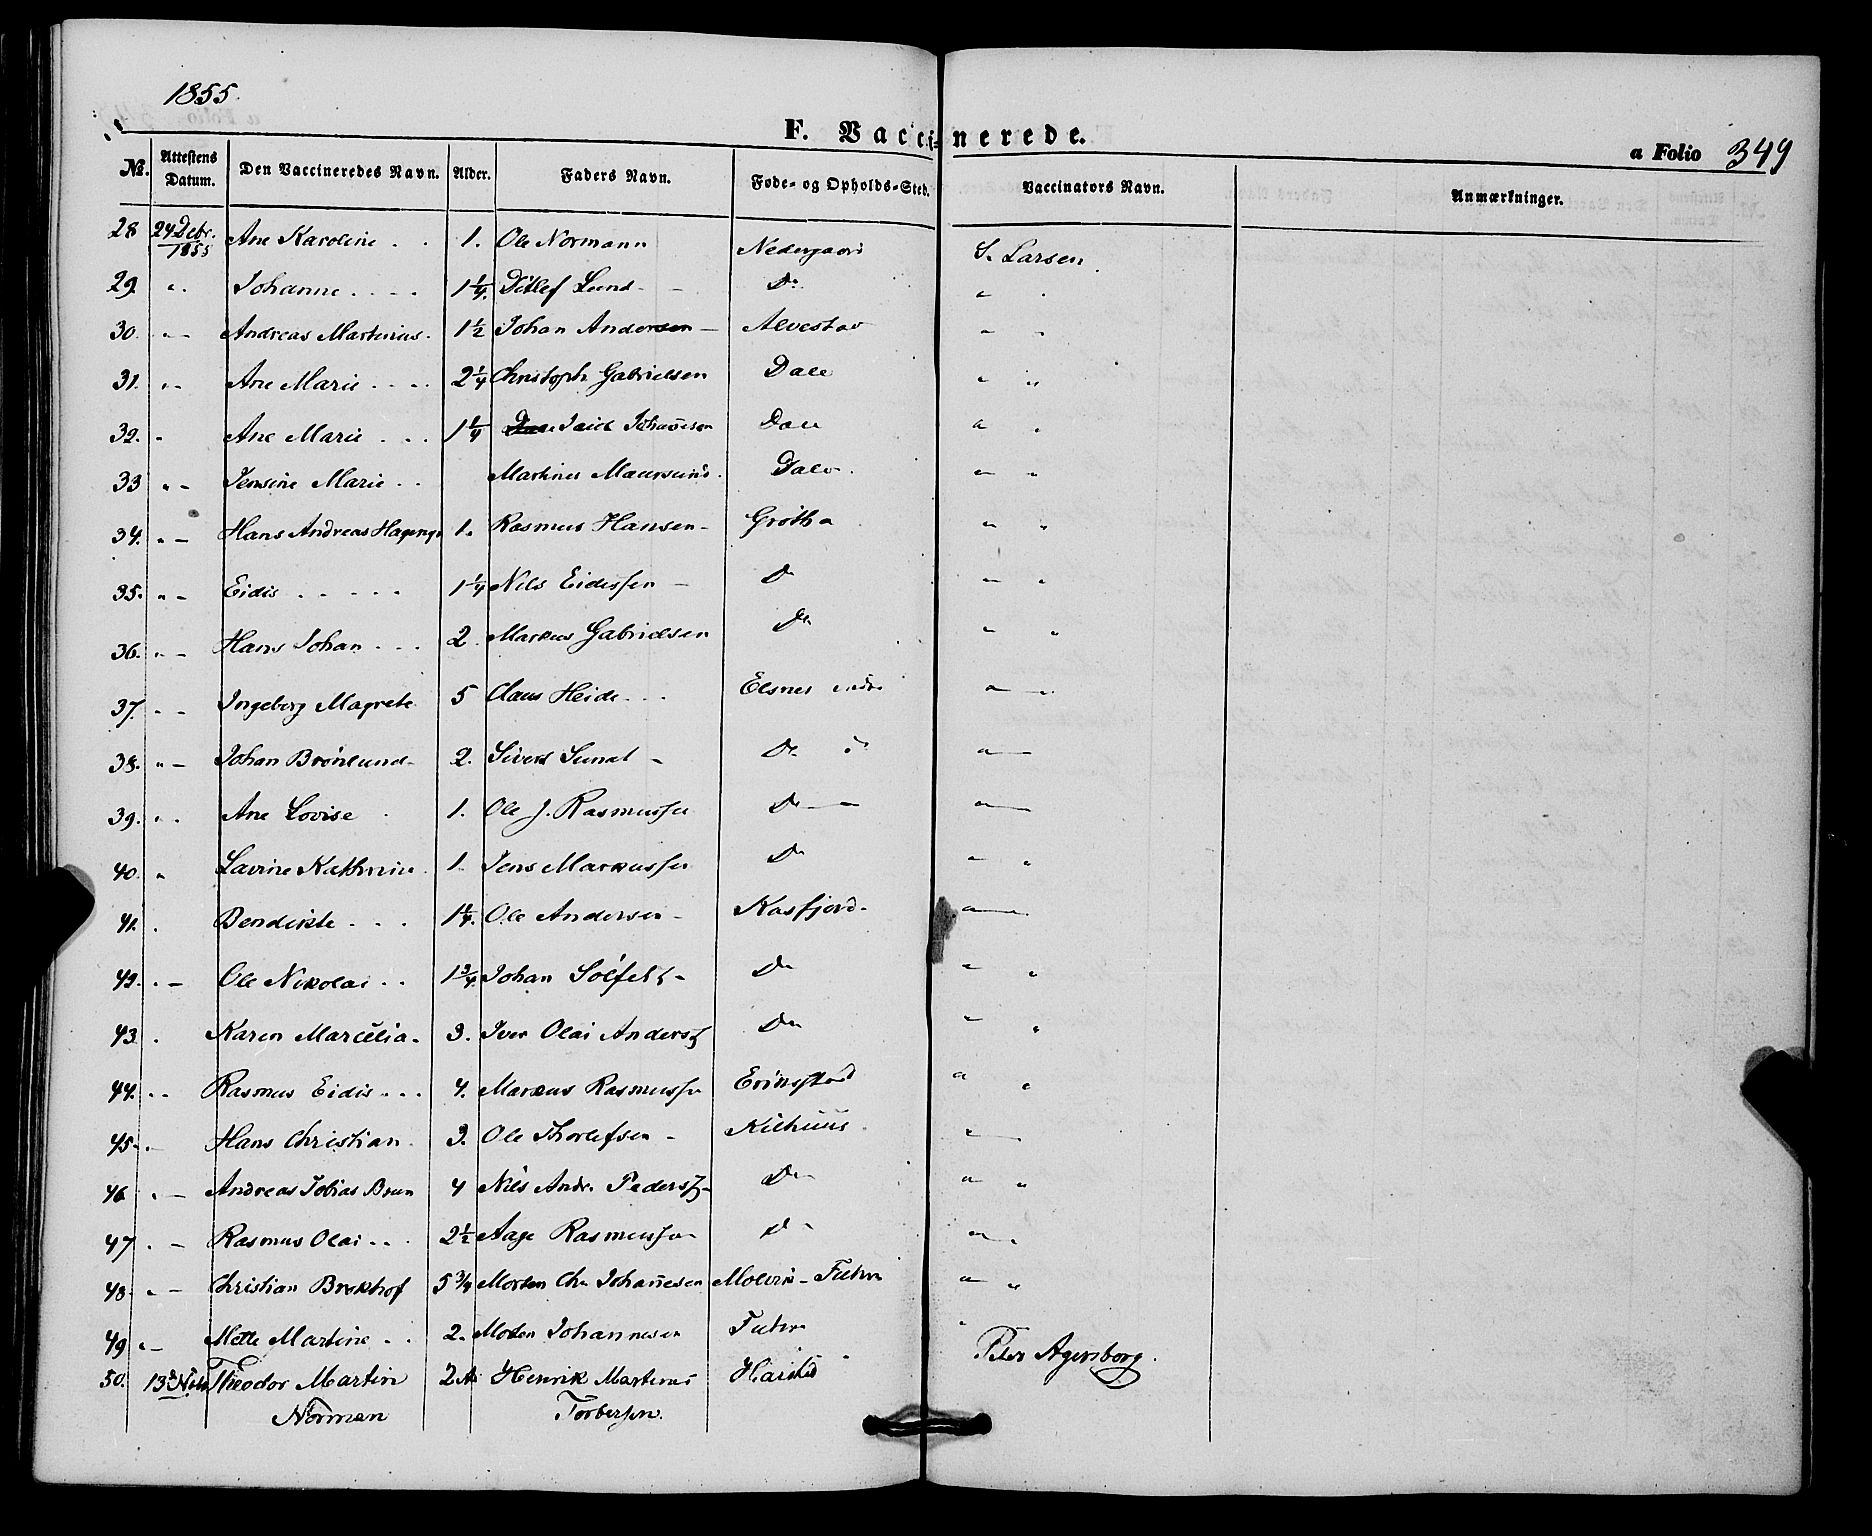 1855.
F. Vaccinerede.
a Folio 349
№. Attestens Datum. Den Vaccineredes Navn. Alder. Faders Navn. Føde- og Opholds-Sted. Vaccinators Navn. Anmærkninger.
28 24 Debr. 1855 Ane Karoline . . 1. Ole Normann Nedergaard S. Larsen
29. " Johanne . . . . 1 1/4. Ditlef Lund - - Do " "
30. " - Andreas Martinius. 1 1/2 Johan Andersen - Alvestav " "
31. " " Ane Marie . . . . 2 1/4 Christoph Gabrielsen Dale " "
32. " Ane Marie . . . 1 1/4 Johannesen Dale " "
33 " - Jensine Marie . . Martinus Maursund. Dale. " "
34. " - Hans Andreas 1. Rasmus Hansen - Grøthe " "
35. " - Eidis . . . . . 1 1/4 Nils Eidissen - Do " "
36. " - Hans Johan . . . 2. Markus Gabrielsen Do " "
37. " - Ingeberg Magrete 5 Claus Heide . . . Elsnes indre " "
38. " - Johan Brønlund - 2. Sivert Lund - Do " "
39. " . Ane Lovise 1. Ole J. Rasmussen Do - "
40. " Lavine Kathrine . 1. Jens Markussen Do " "
41. . Bendikte . . . 1 1/4. Ole Andersen - Kasfjord - "
42. . - Ole Nikolai . . 1 3/4. Johan Solfeldt - Do " "
43. . Karen Marcelia. 3. Iver Olai Anders. Do " "
44. . . Rasmus Eidis . . . 4. Markus Rasmussen Erikstad " "
45. . Hans Christian . 3. Ole Thorlefsen - Kilhuus . "
46. . - Andreas Tobias Brun 4 Nils Andr. Peders. Do " "
47. . - Rasmus Olai . . . 2 1/2 Aage Rasmussen Do " "
48. . - Christian Brekhof 5 3/4 Morten Chr. Johannesen Molvik - " "
49. - Mette Martine . . 2. Morten Johannesen "
50. 13 Theodor Martin 2 Henrik Martinus Harstad Peter Agersborg.
Norman Torbersen.